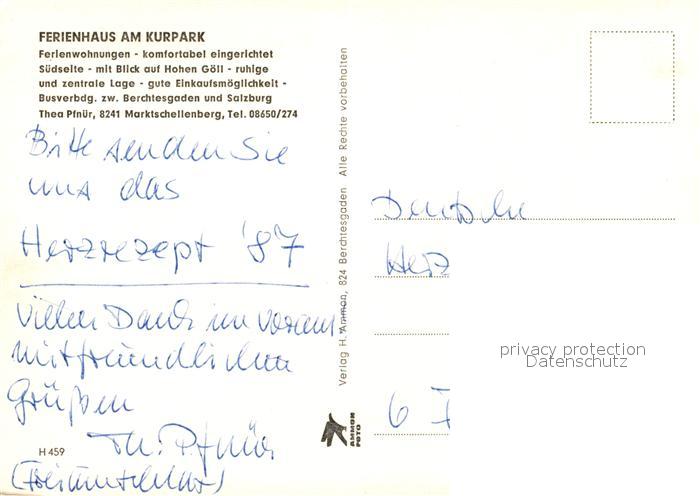 FERIENHAUS AM KURPARK
Ferienwohnungen - komfortabel eingerichtet
Südseite - mit Blick auf Hohen Göll - ruhige
und zentrale Lage - gute Einkaufsmöglichkeit -
Busverbdg. zw. Berchtesgaden und Salzburg
Thea Pfnür, 8241 Marktschellenberg, Tel. 08650/274
Bitte senden Sie
uns das
Herzrezept '87
Vielen Dank im voraus
mit freundlichen
Grüßen
Th. Pfnür
H 459
Verlag H. Ammon, 824 Berchtesgaden Alle Rechte vorbehalten
AMMON
FOTO
Deutsche
Herz
6
privacy protection
Datenschutz